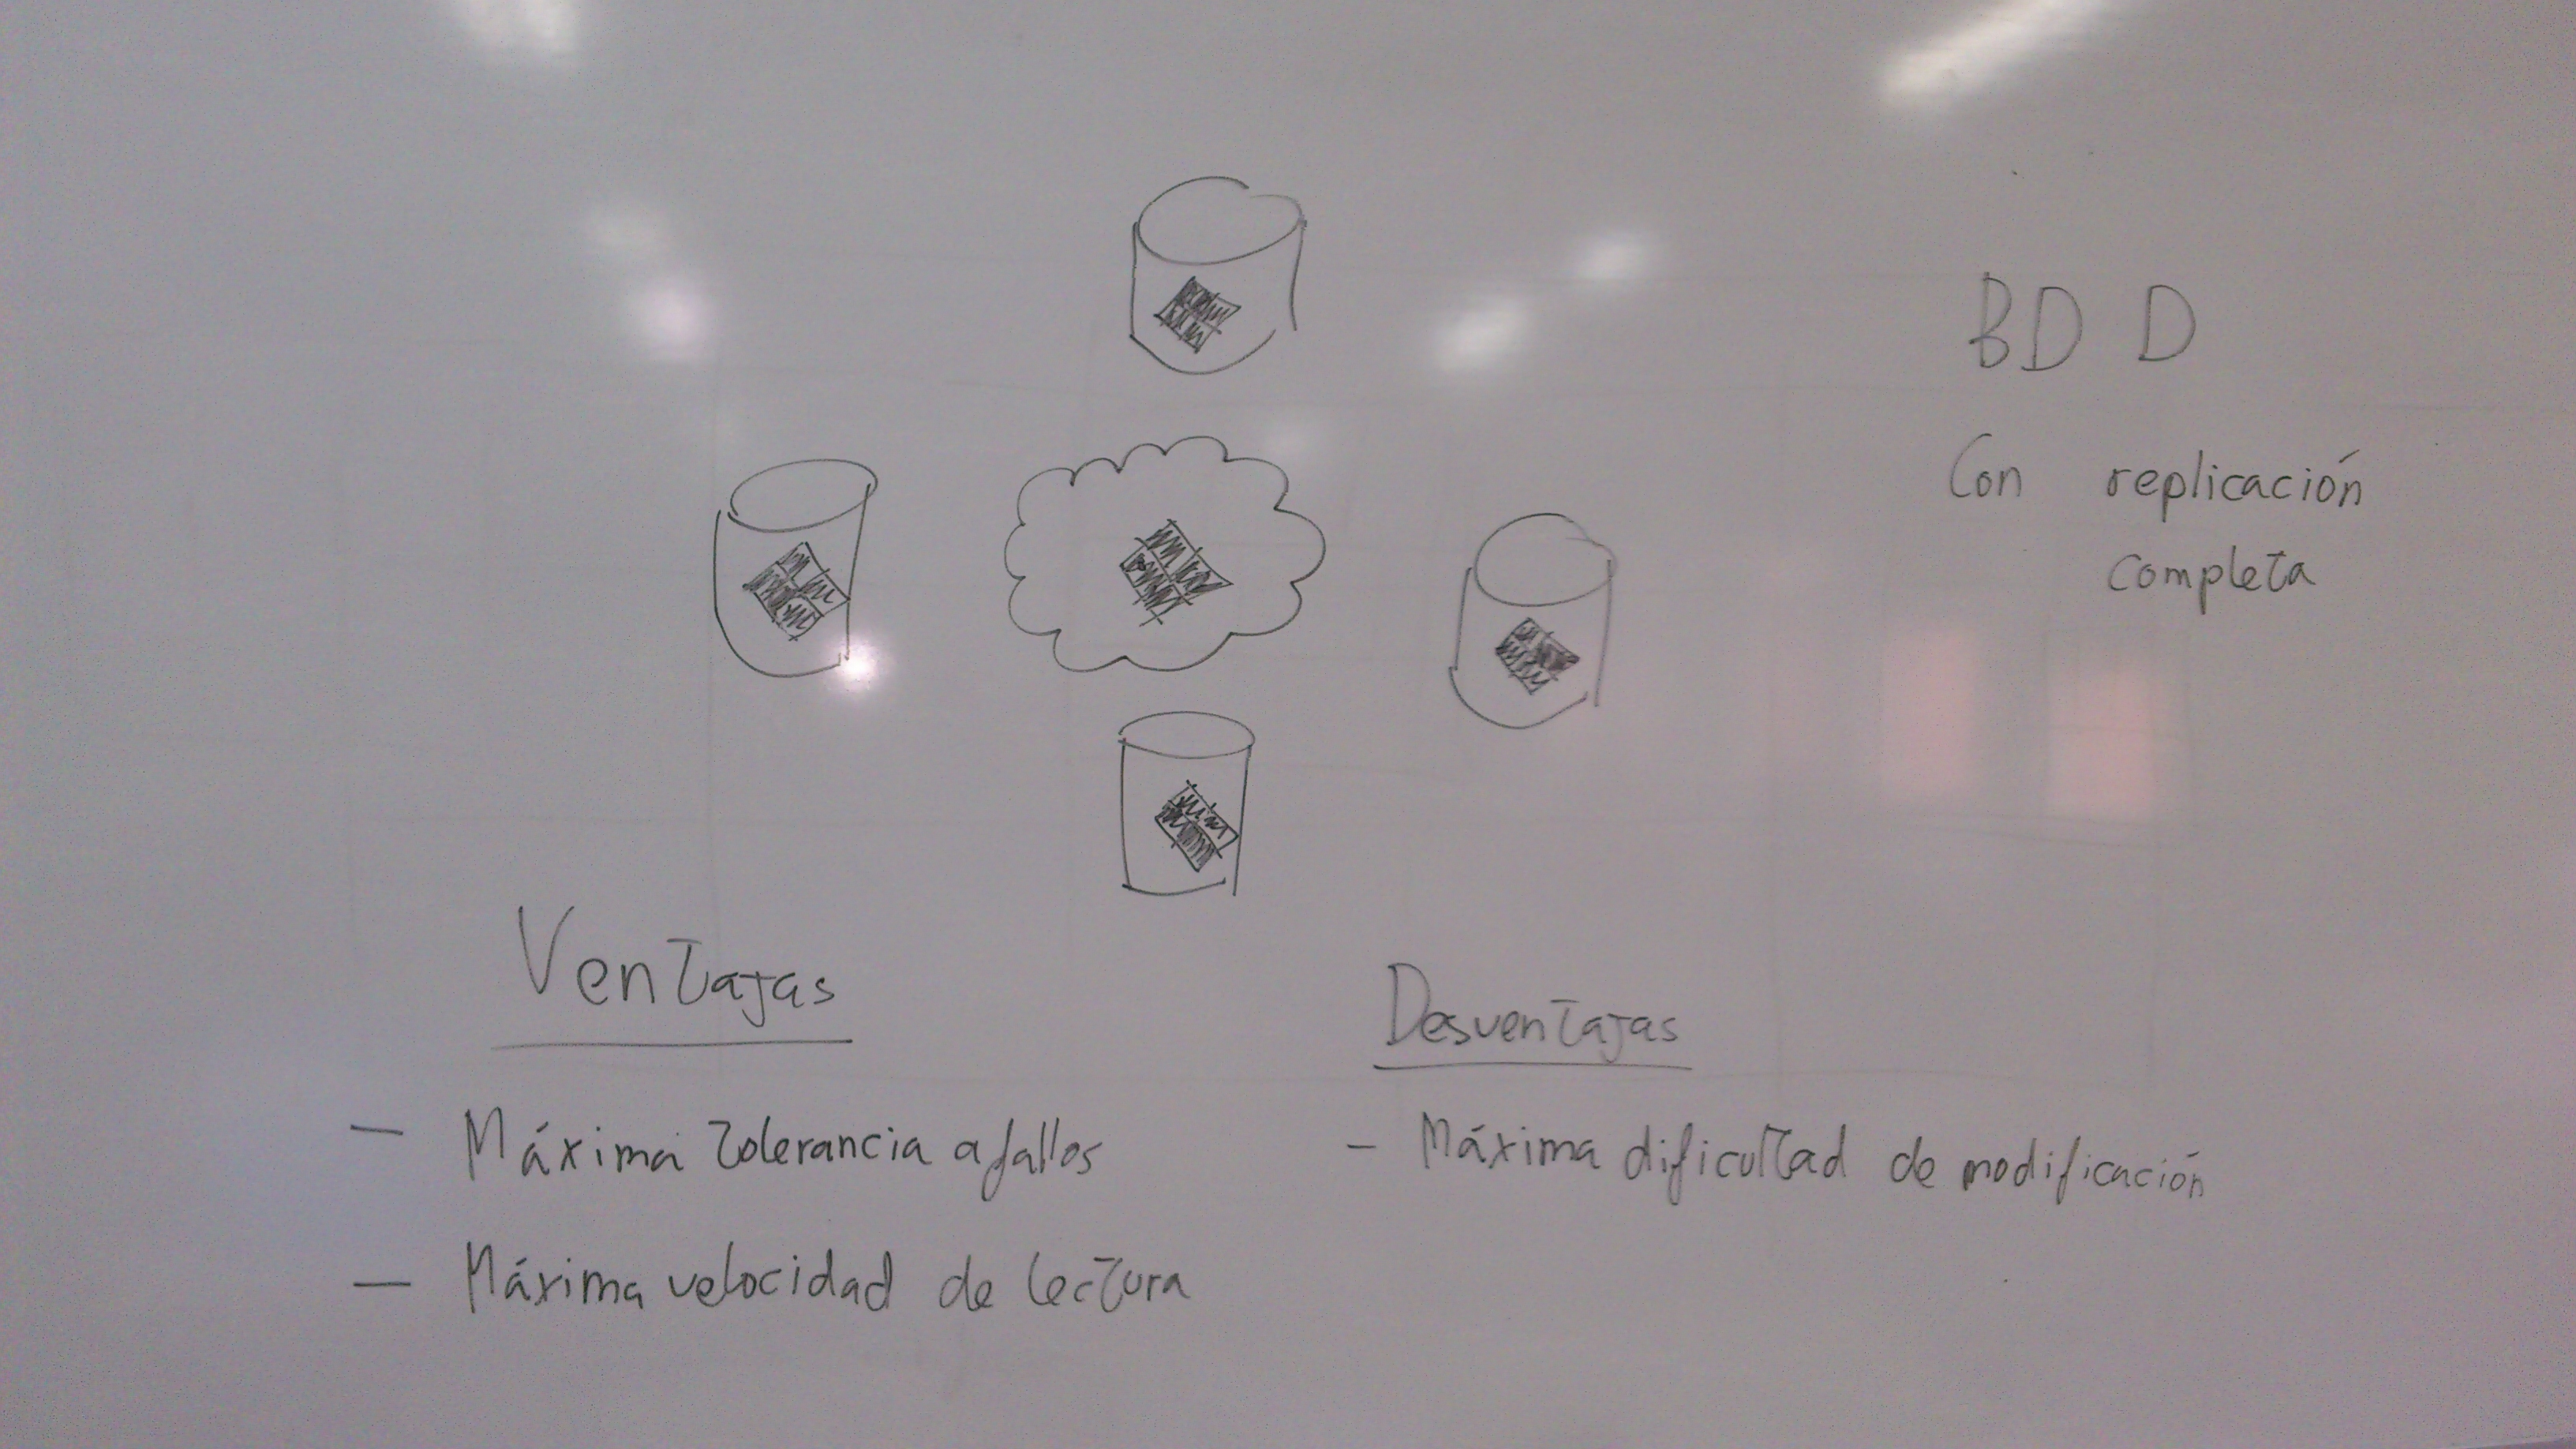 BD D
Con replicación
completa
Ventajas
- Máxima tolerancia a fallos
- Máxima velocidad de lectura
Desventajas
- Máxima dificultad de modificación